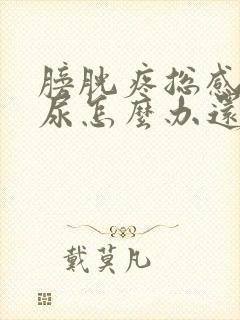 膀胱疼总感
尿怎麼办還
戴莫凡